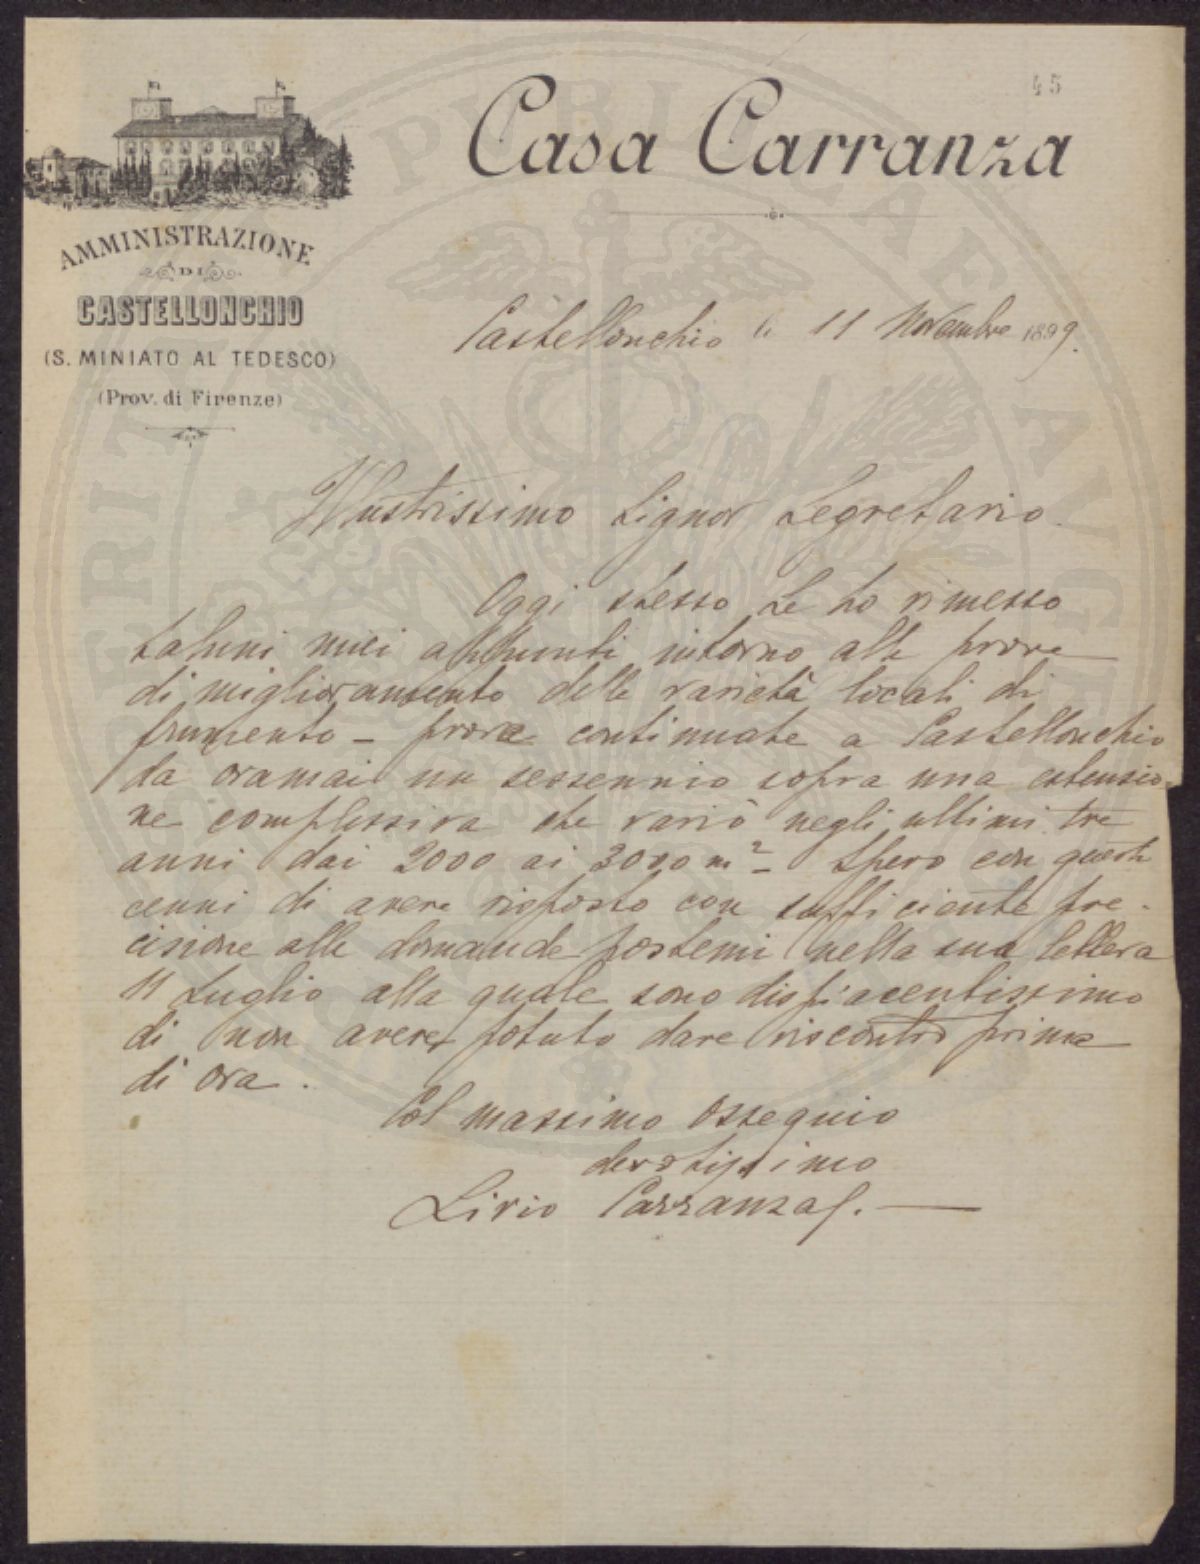 45
Casa Carranza
AMMINISTRAZIONE
DI
CASTELLONCHIO
(S. MINIATO AL TEDESCO)
(Prov. di Firenze)
Castellonchio li 11 Novembre 1899.
Illustrissimo Signor Segretario.
Oggi stesso Le ho rimesso
taluni miei appunti intorno alle prove
di miglioramento delle varietà locali di
frumento – prove continuate a Castellonchio
da oramai un sessennio sopra una estensio-
ne complessiva che variò negli ultimi tre
anni dai 2000 ai 3000 m² – Spero con questi
cenni di avere risposto con sufficiente pre-
cisione alle domande postemi nella sua lettera
11 Luglio alla quale sono dispiacentissimo
di non avere potuto dare riscontro prima
di ora.
Col massimo ossequio
devotissimo
Livio Carranza
PUBLICAE